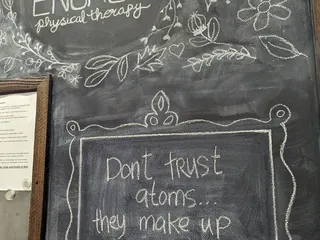 physical therapy
Don't trust
atoms...
they make up